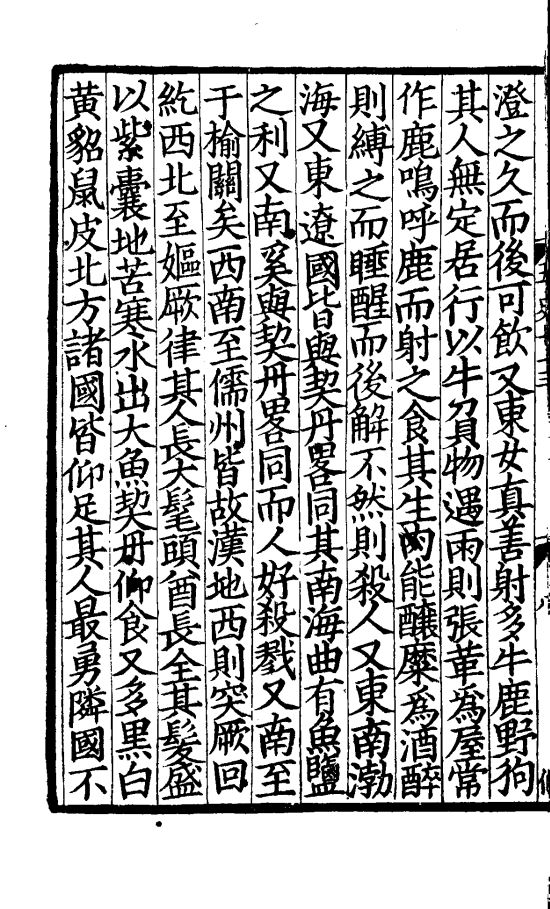 澄之久而後可飲又東女真善射多牛鹿野狗
其人無定居行以牛負物遇雨則張革爲屋常
作鹿鳴呼鹿而射之食其生肉能釀麋爲酒醉
則縛之而睡醒而後解不然則殺人又東南渤
海又東遼國皆與契丹畧同其南海曲有魚鹽
之利又南奚與契丹畧同而人好殺戮又南至
于榆關矣西南至儒州皆故漢地西則突厥回
紇西北至嫗厥律其人長大髦頭酋長全其髮盛
以紫囊地苦寒水出大魚契丹仰食又多黑白
黄貂鼠皮北方諸國皆仰足其人最勇隣國不